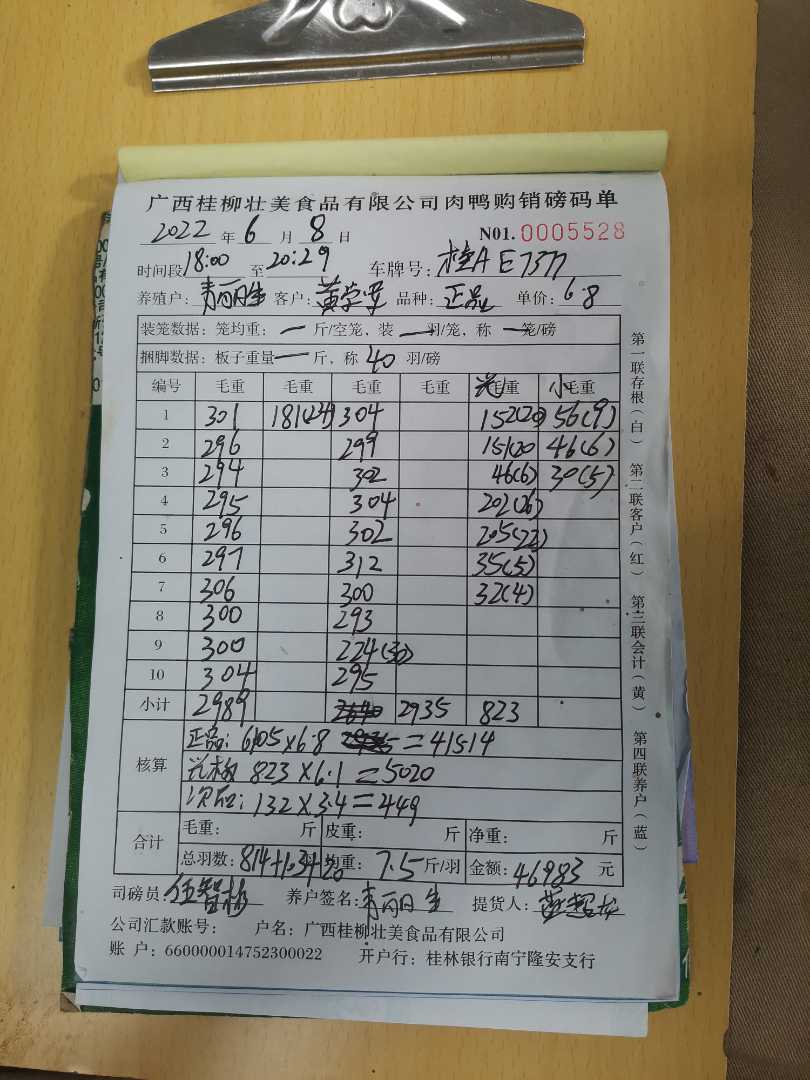 广西桂柳壮美食品有限公司肉鸭购销磅码单
2022 年 6 月 8 日 N01. 0005528
时间段 18:00 至 20:29 车牌号: 桂A E7377
养殖户: 客户: 黄荣 品种: 正品 单价: 6.8
装笼数据: 笼均重: 一 斤/空笼、装 一 羽/笼, 称 一 笼/磅
捆脚数据: 板子重量 一 斤, 称 40 羽/磅
编号 毛重 毛重 毛重 毛重 光 毛重 小 毛重
1 301 181(24) 304 152(20) 56(9)
2 296 299 151(20 46(6)
3 294 302 46(6) 30(5)
4 295 304 202(26)
5 296 302 205(22)
6 297 312 35(5)
7 306 300 32(4)
8 300 293
9 300 224(30)
10 304 295
小计 2989 2935 823
核算
正品: 6105×6.8 =41514
823×6.1=5020
次品: 132×3.4=449
合计 毛重: 斤 皮重: 斤 净重: 斤
总羽数: 814+103+20 均重: 7.5 斤/羽 金额: 46983 元
司磅员 伍智 养户签名: 丽生 提货人:
公司汇款账号: 户名: 广西桂柳壮美食品有限公司
账 户: 660000014752300022 开户行: 桂林银行南宁隆安支行
第一联存根(白) 第二联客户(红) 第三联会计(黄) 第四联养户(蓝)